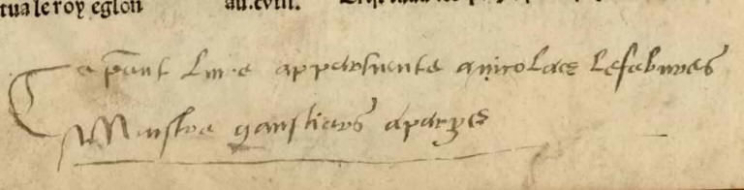 tua le roy eglon au.cviii.
Ce pñt Livre appartient a nicolas lefebvres
Maistre gantier a paris